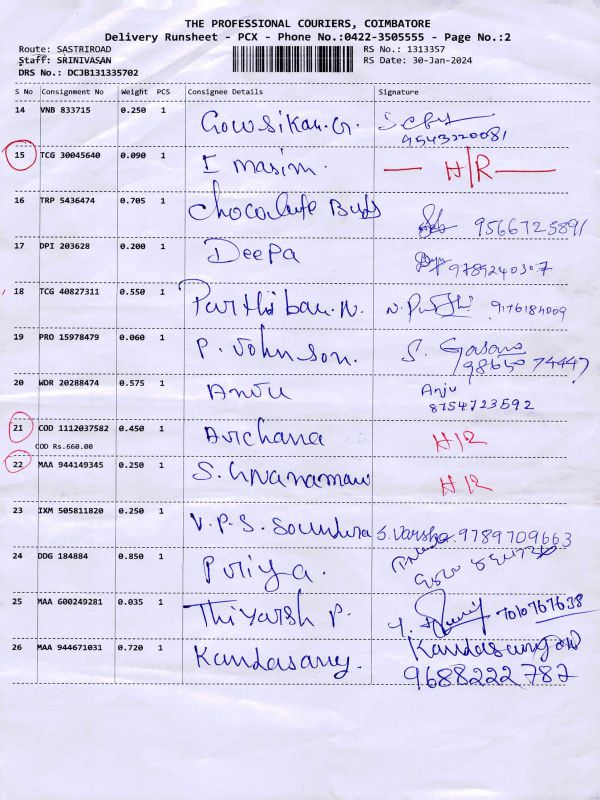 THE PROFESSIONAL COURIERS, COIMBATORE
Delivery Runsheet - PCX - Phone No.:0422-3505555 - Page No.:2
Route: SASTRIROAD
RS No.: 1313357
Staff: SRINIVASAN
RS Date: 30-Jan-2024
DRS No.: DCJB131335702
S No Consignment No Weight PCS Consignee Details Signature
14 VNB 833715 0.250 1 Gowsikan.G.
9543220081
15 TCG 30045640 0.090 1 I masim. H/R
16 TRP 5436474 0.705 1 Chocolate Buds 9566725891
17 DPI 203628 0.200 1 Deepa 9789240307
18 TCG 40827311 0.550 1 Parthiban.N. 9176184009
19 PRO 15978479 0.060 1 P. Johnson. S.
9865074447
20 WDR 20288474 0.575 1 Anju Anju
8754723592
21 COD 1112037582 0.450 1 Archana H/R
COD Rs.660.00
22 MAA 944149345 0.250 1 H/R
23 IXM 505811820 0.250 1 V.P.S. Soundra S. Varsha. 9789709663
24 DDG 184884 0.850 1 Priya.
25 MAA 600249281 0.035 1 Thiyarsh P. 7010767638
26 MAA 944671031 0.720 1 Kandasamy.
9688222787